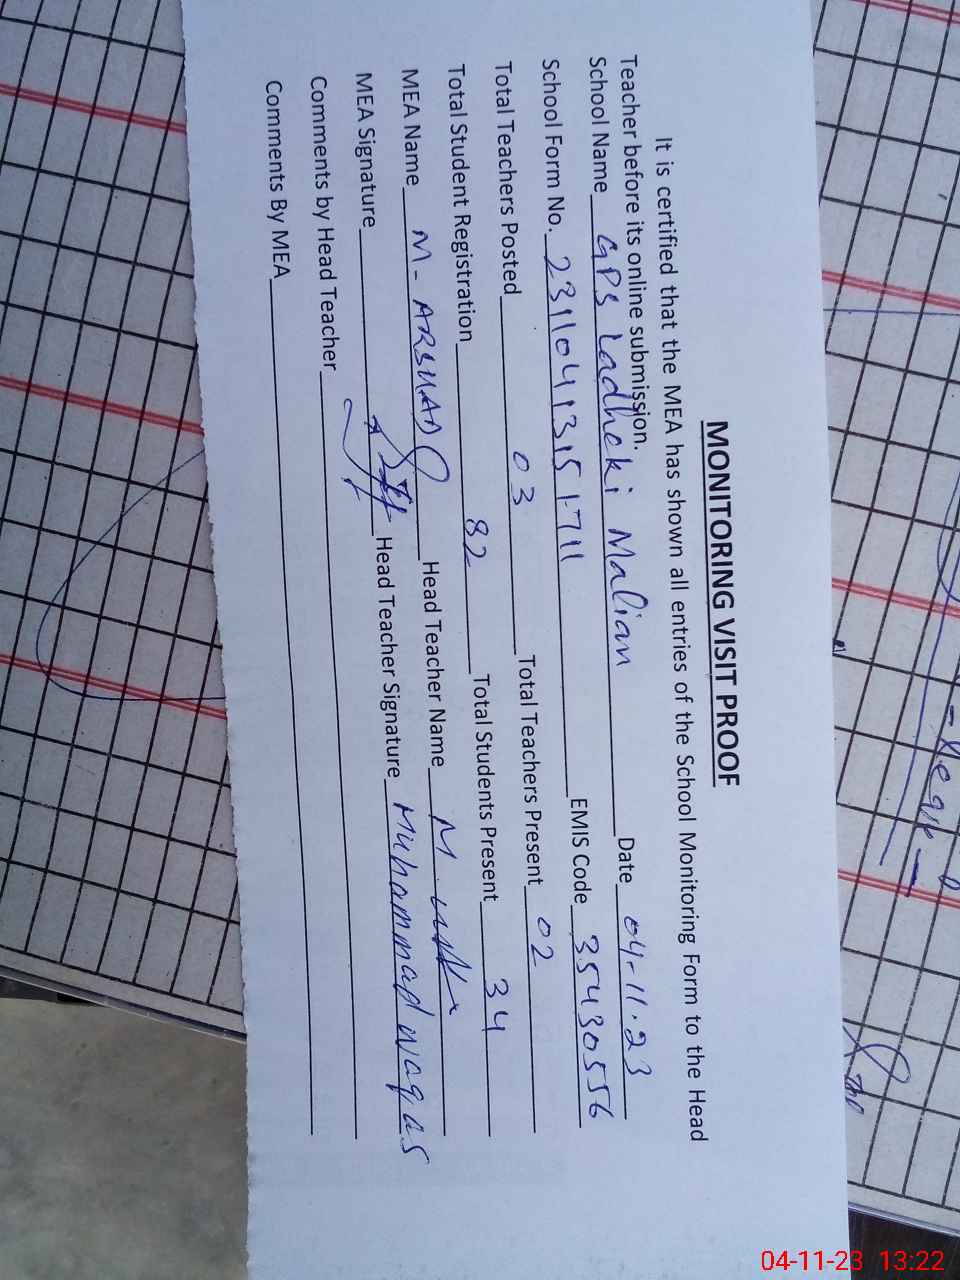 MONITORING VISIT PROOF
It is certified that the MEA has shown all entries of the School Monitoring Form to the Head
Teacher before its online submission.
School Name GPS Ladheki Malian Date 04-11-23
School Form No. 23110413151711 EMIS Code 35430556
Total Teachers Posted 03 Total Teachers Present 02
Total Student Registration 82 Total Students Present 34
MEA Name M- ARSHAD Head Teacher Name M.
MEA Signature Head Teacher Signature Muhammad waqas
Comments by Head Teacher
Comments By MEA
04-11-23 13:22